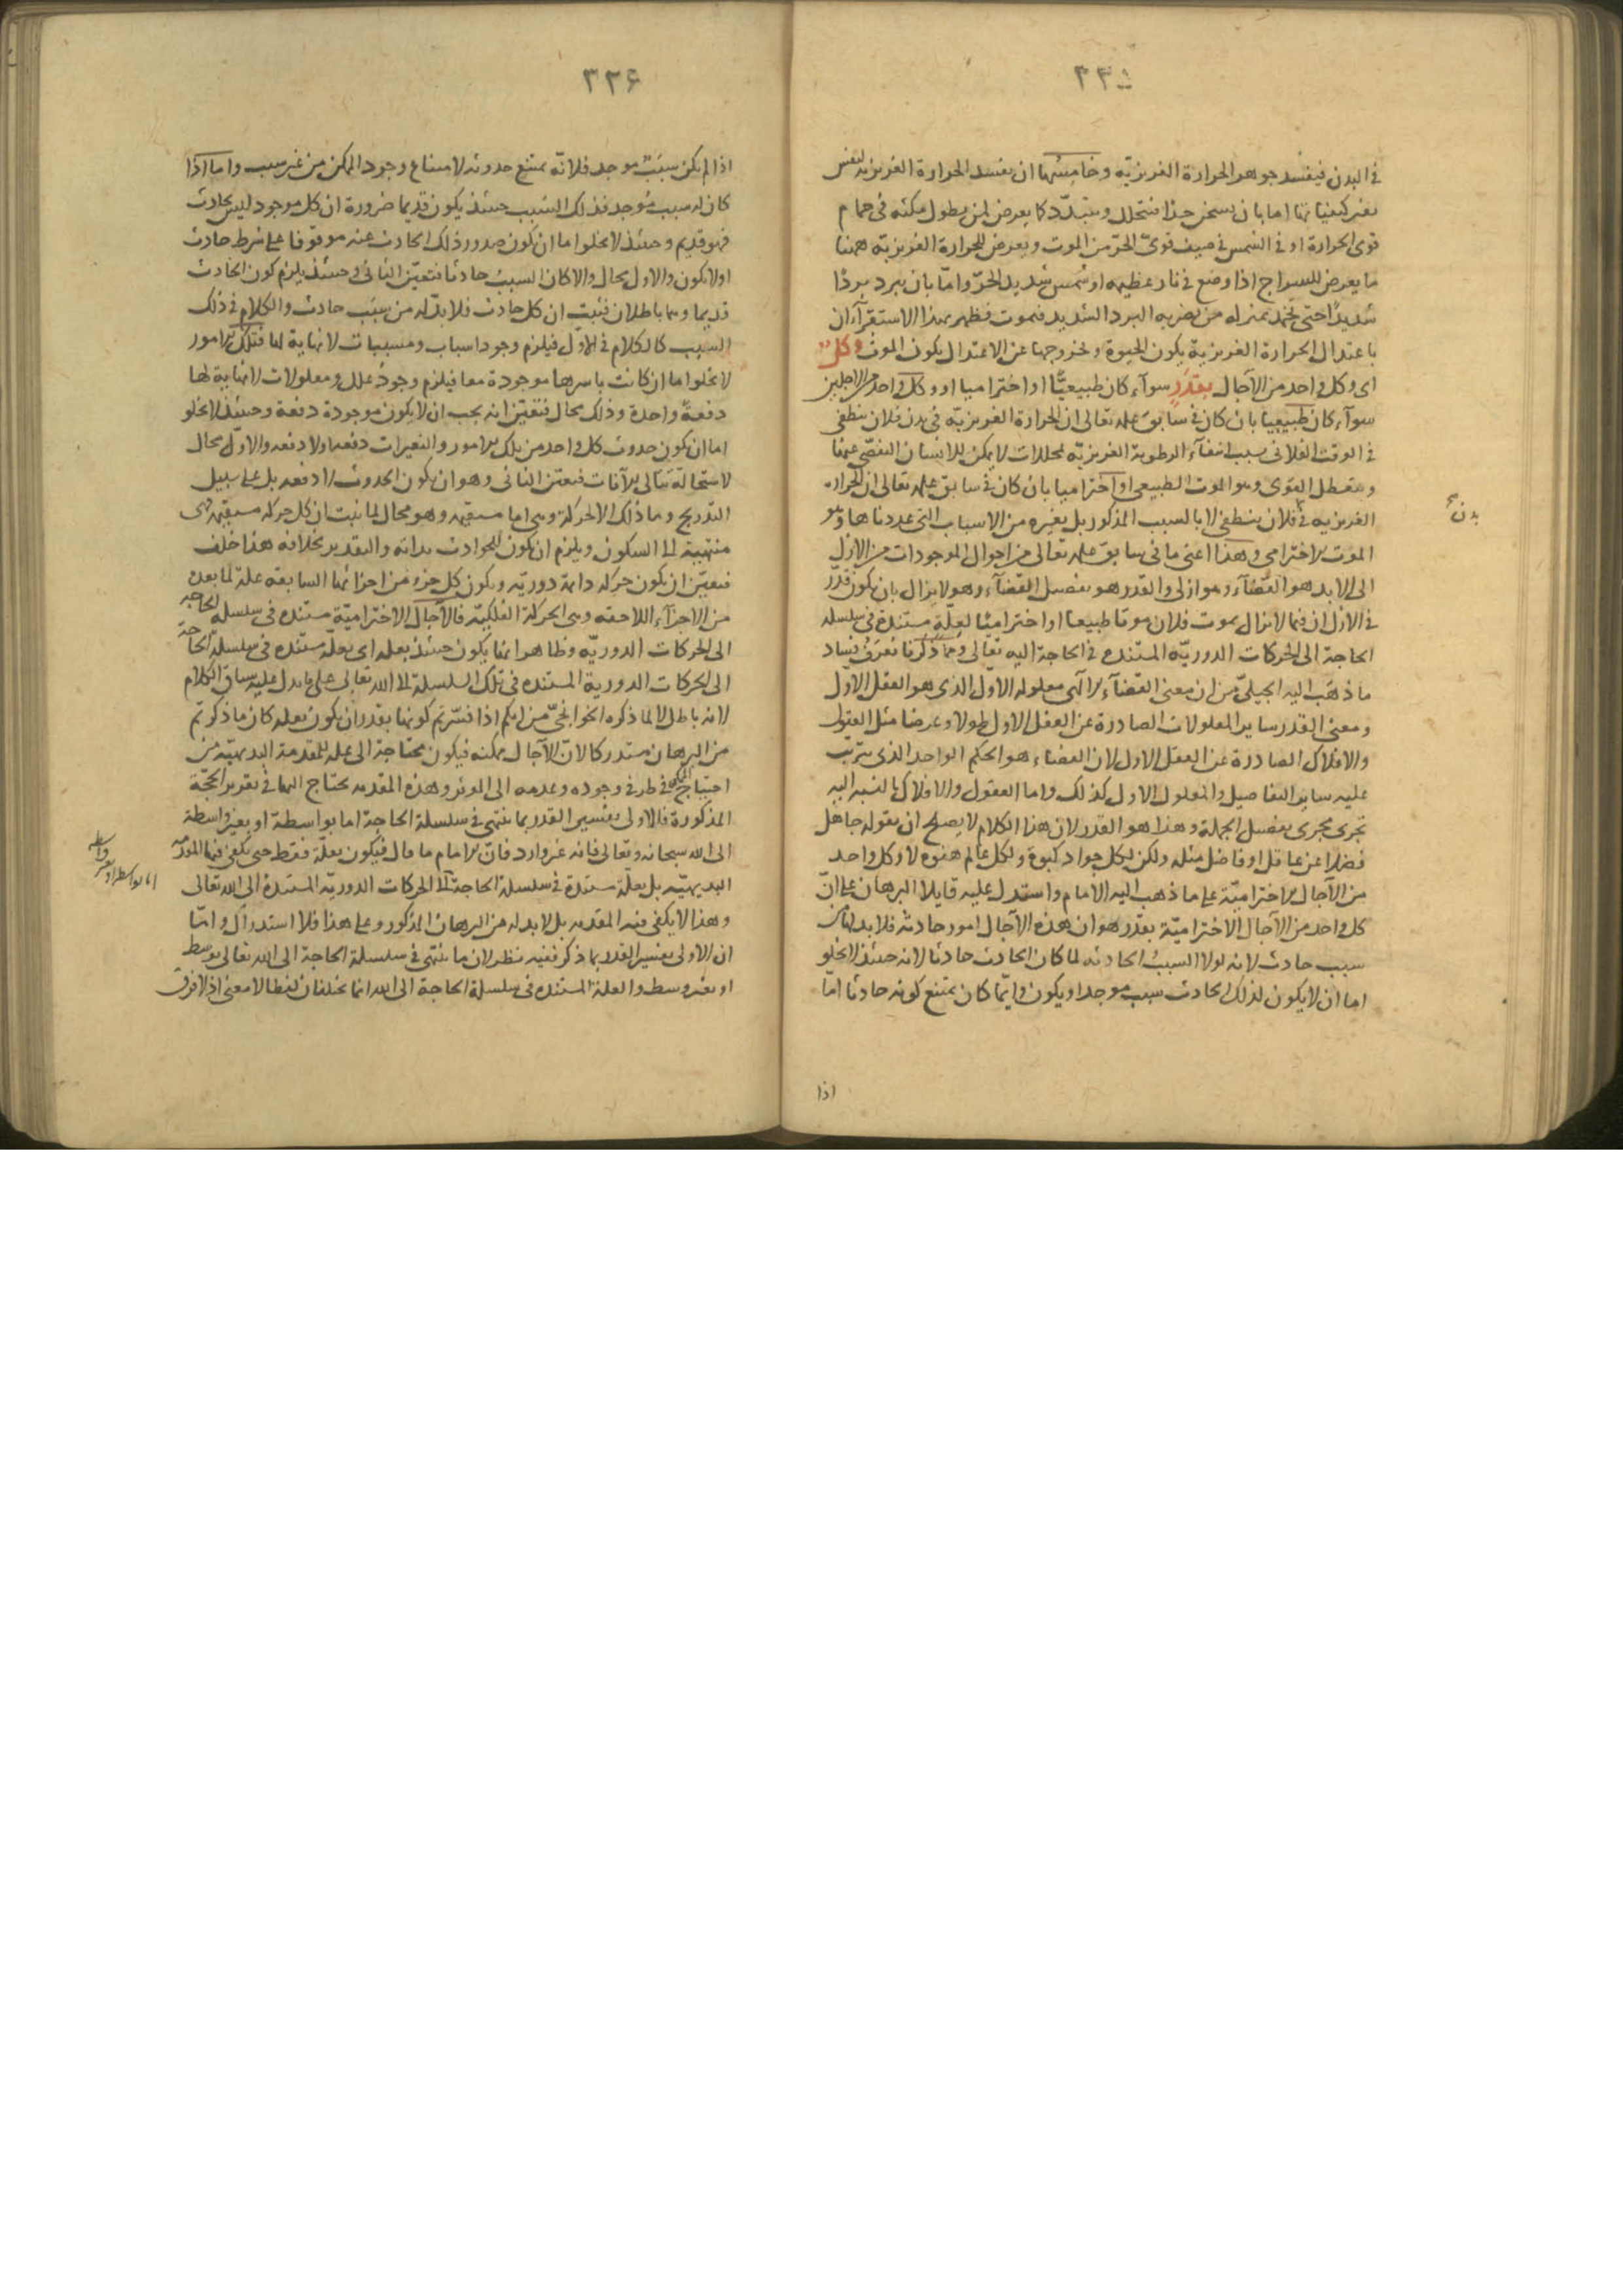 ٣٣٥
في البدن فيفسد جوهر الحرارة الغريزيّة وخامسها ان تفسد الحرارة الغريزية لنفس
تغير كيفياتها اما بان يسخن جدا فتتحلل وتتبدّد كما يعرض لمن يطول مكثه في حمام
قوى الحرارة او في الشمس في صيف قوىّ الحرّ من الموت ويعرض للحرارة الغريزيّة ههنا
ما يعرض للسراج اذا وضع في نار عظيمه او شمس شديد الحرّ واما بان يبرد بردا
شديدا حتى يخمد بمنزله من يضربه البرد الشديد فيموت فظهر بهذا الاستقرآء ان
باعتدال الحرارة الغريزية يكون الحيوة وبخروجها عن الاعتدال يكون الموت وكل
اى وكل واحد من الآجال بقدر سوآء كان طبيعيّا او اختراميا او وكل واحد من الاجلين
سوآء كان طبيعيا بان كان في سابق علمه تعالى ان الحرارة الغريزيّه في بدن فلان ينطفى
في الوقت الفلانى بسبب انتفآء الرطوبة الغريزيّه لمحللات لا يمكن للانسان التفصّى عنها
وبتعطل القوى وهو الموت الطبيعى او اختراميا بان كان في سابق علمه تعالى ان الحراره
الغريزيه في فلان ينطفى لا بالسبب المذكور بل بغيره من الاسباب التى عددناها وهو
بدن
الموت الاخترامى وهذا اعنى ما في سابق علمه تعالى من احوال الموجودات من الازل
الى الابد هو القضآء وهو ازلى والقدر هو تفصيل القضآء وهو لا يزال بان يكون قدّر
في الازل ان فيما لا يزال يموت فلان موتا طبيعيا او اختراميّا لعلّة مستندة في سلسله
الحاجة الى الحركات الدوريّه المستنده في الحاجة اليه تعالى ومما ذكرنا تعرف فساد
ما ذهب اليه الجيلىّ من ان معنى القضآء الآلهى معلوله الاول الذى هو العقل الاول
ومعنى القدر ساير المعلولات الصادرة عن العقل الاول طولا وعرضا مثل العقول
والافلاك الصادرة عن العقل الاول لان القضاء هو الحكم الواحد الذى يترتب
عليه ساير التفاصيل والمعلول الاول كذلك واما العقول والافلاك بالنسبه اليه
تجرى مجرى تفصيل الجملة وهذا هو القدر لان هذا الكلام لا يصلح ان يقوله جاهل
فضلا عن عاقل او فاضل مثله ولكن لكل جواد كبوة ولكل عالم هفوه لا وكل واحد
من الآجال الاختراميّة على ما ذهب اليه الامام واستدل عليه قايلا البرهان على انّ
كل واحد من الآجال الاختراميّة بقدر هو ان هذه الآجال امور حادثة فلا بد لها من
سبب حادث لانه لولا السبب الحادثه لما كان الحادث حادثا لانه حينئذ لا يخلو
اما ان لا يكون لذلك الحادث سبب موجد او يكون وايّما كان يمتنع كونه حادثا امّا
اذا
٣٣۶
اذا لم يكن سبب موجد فلانّه يمتنع حدوثه لامتناع وجود الممكن من غير سبب واما اذا
كان له سبب مُوجد فذلك السبب حينئذ يكون قديما ضرورة ان كل موجود ليس بحادث
فهو قديم وحينئذ لا يخلوا اما ان يكون صدور ذلك الحادث عنه موقوفا على شرط حادث
اولا يكون والاول محال والا كان السبب حادثا فتعيّن الثانى وحينئذ يلزم كون الحادث
قديما وهما باطلان فثبت ان كل حادث فلا بدّ له من سبب حادث والكلام في ذلك
السبب كالكلام في الاوّل فيلزم وجود اسباب ومسببات لا نهاية لها فتلك الامور
لا يخلوا اما ان كانت باسرها موجودة معا فيلزم وجود علل ومعلولات لا نهاية لها
دفعةً واحدة وذلك محال فتعيّن انه يجب ان لا يكون موجودة دفعة وحينئذ لا يخلو
اما ان يكون حدوث كل واحد من تلك الامور والتغيرات دفعه اولا دفعه والاوّل محال
لاستحالة تتالى الآنات فتعيّن الثانى وهو ان يكون الحدوث لا دفعه بل على سبيل
التدريج وما ذلك الا الحركة وهى اما مستقيمه وهو محال لما ثبت ان كل حركه مستقيمه فهى
منتهية الى السكون ويلزم ان يكون للحوادث بدايه والتقدير بخلافه هذا خلف
فتعيّن ان يكون حركه دائمة دوريّه ويكون كل جزء من اجزائها السابقه علّة لما بعده
من الاجزآء اللاحقه وهى الحركة الفلكيّة فالآجال الاختراميّة مستنده في سلسله الحاجه
الى الحركات الدوريّه وظاهر انها يكون حينئذ بعله اى بعلّة مستنده في سلسلة الحاجة
الى الحركات الدورية المستنده في تلك السلسلة الى الله تعالى على ما يدل عليه سياق الكلام
لا انه باطل لا لما ذكره الخوانجىّ من انكم اذا فسّرتم كونها بقدر ان يكون بعله كان ما ذكرتم
من البرهان مستدركا لانّ الآجال ممكنه فيكون محتاجة الى عله للمقدمة البديهيّه من
احتياج الممكن في طرفى وجوده وعدمه الى الموثر وهذه المقدمه تحتاج اليها في تقرير الحجّة
المذكورة فالاولى تفسير القدر بما ينتهى في سلسلة الحاجة اما بواسطة او بغير واسطة
الى الله سبحانه وتعالى فانه غير وارد فانّ الامام ما قال فيكون بعلّة فقط حتى يكفى فيها المقدمة
اما بواسطه او بغير واسطه
البديهيّه بل بعلّة مستندة في سلسلة الحاجة الى الحركات الدوريّه المستندة الى الله تعالى
وهذا لا يكفى فيه المقدمه بل لا بد له من البرهان المذكور وعلى هذا فلا استدراك واما
ان الاولى تفسير القدر بما ذكر ففيه نظر لان ما ينتهى في سلسلة الحاجة الى الله تعالى بوسط
او بغير وسط والعلة المستنده في سلسلة الحاجة الى الله انما يختلفان لفظا لا معنى اذ لا فرق